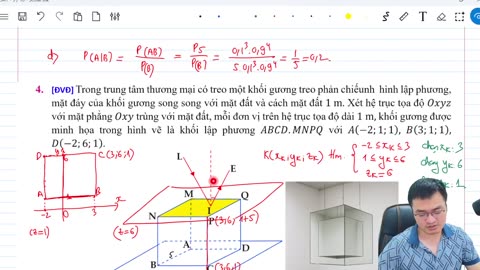 d) P(A|B) = P(AB)/P(B) = P5/P(B) = 0,1³.0,9⁴/5.0,1³.0,9⁴ = 1/5 = 0,2.
4. [ĐVĐ] Trong trung tâm thương mại có treo một khối gương treo phản chiếunh hình lập phương,
mặt đáy của khối gương song song với mặt đất và cách mặt đất 1 m. Xét hệ trục tọa độ Oxyz
với mặt phẳng Oxy trùng với mặt đất, mỗi đơn vị trên hệ trục tọa độ dài 1 m, khối gương được
minh họa trong hình vẽ là khối lập phương ABCD.MNPQ với A(−2;1;1), B(3;1;1),
D(−2;6;1).
D y C(3;6;1)
6
A B
-2 0 3 x
(z=1)
L E
M Q
N I
P(3;6;1+5)
(z=6)
A D
5
B C(3;6;1)
K(xK; yK; zK) Hm
-2 ≤ xK ≤ 3
1 ≤ yK ≤ 6
zK = 6
chạy xK: 3
chạy yK: 6
: 1